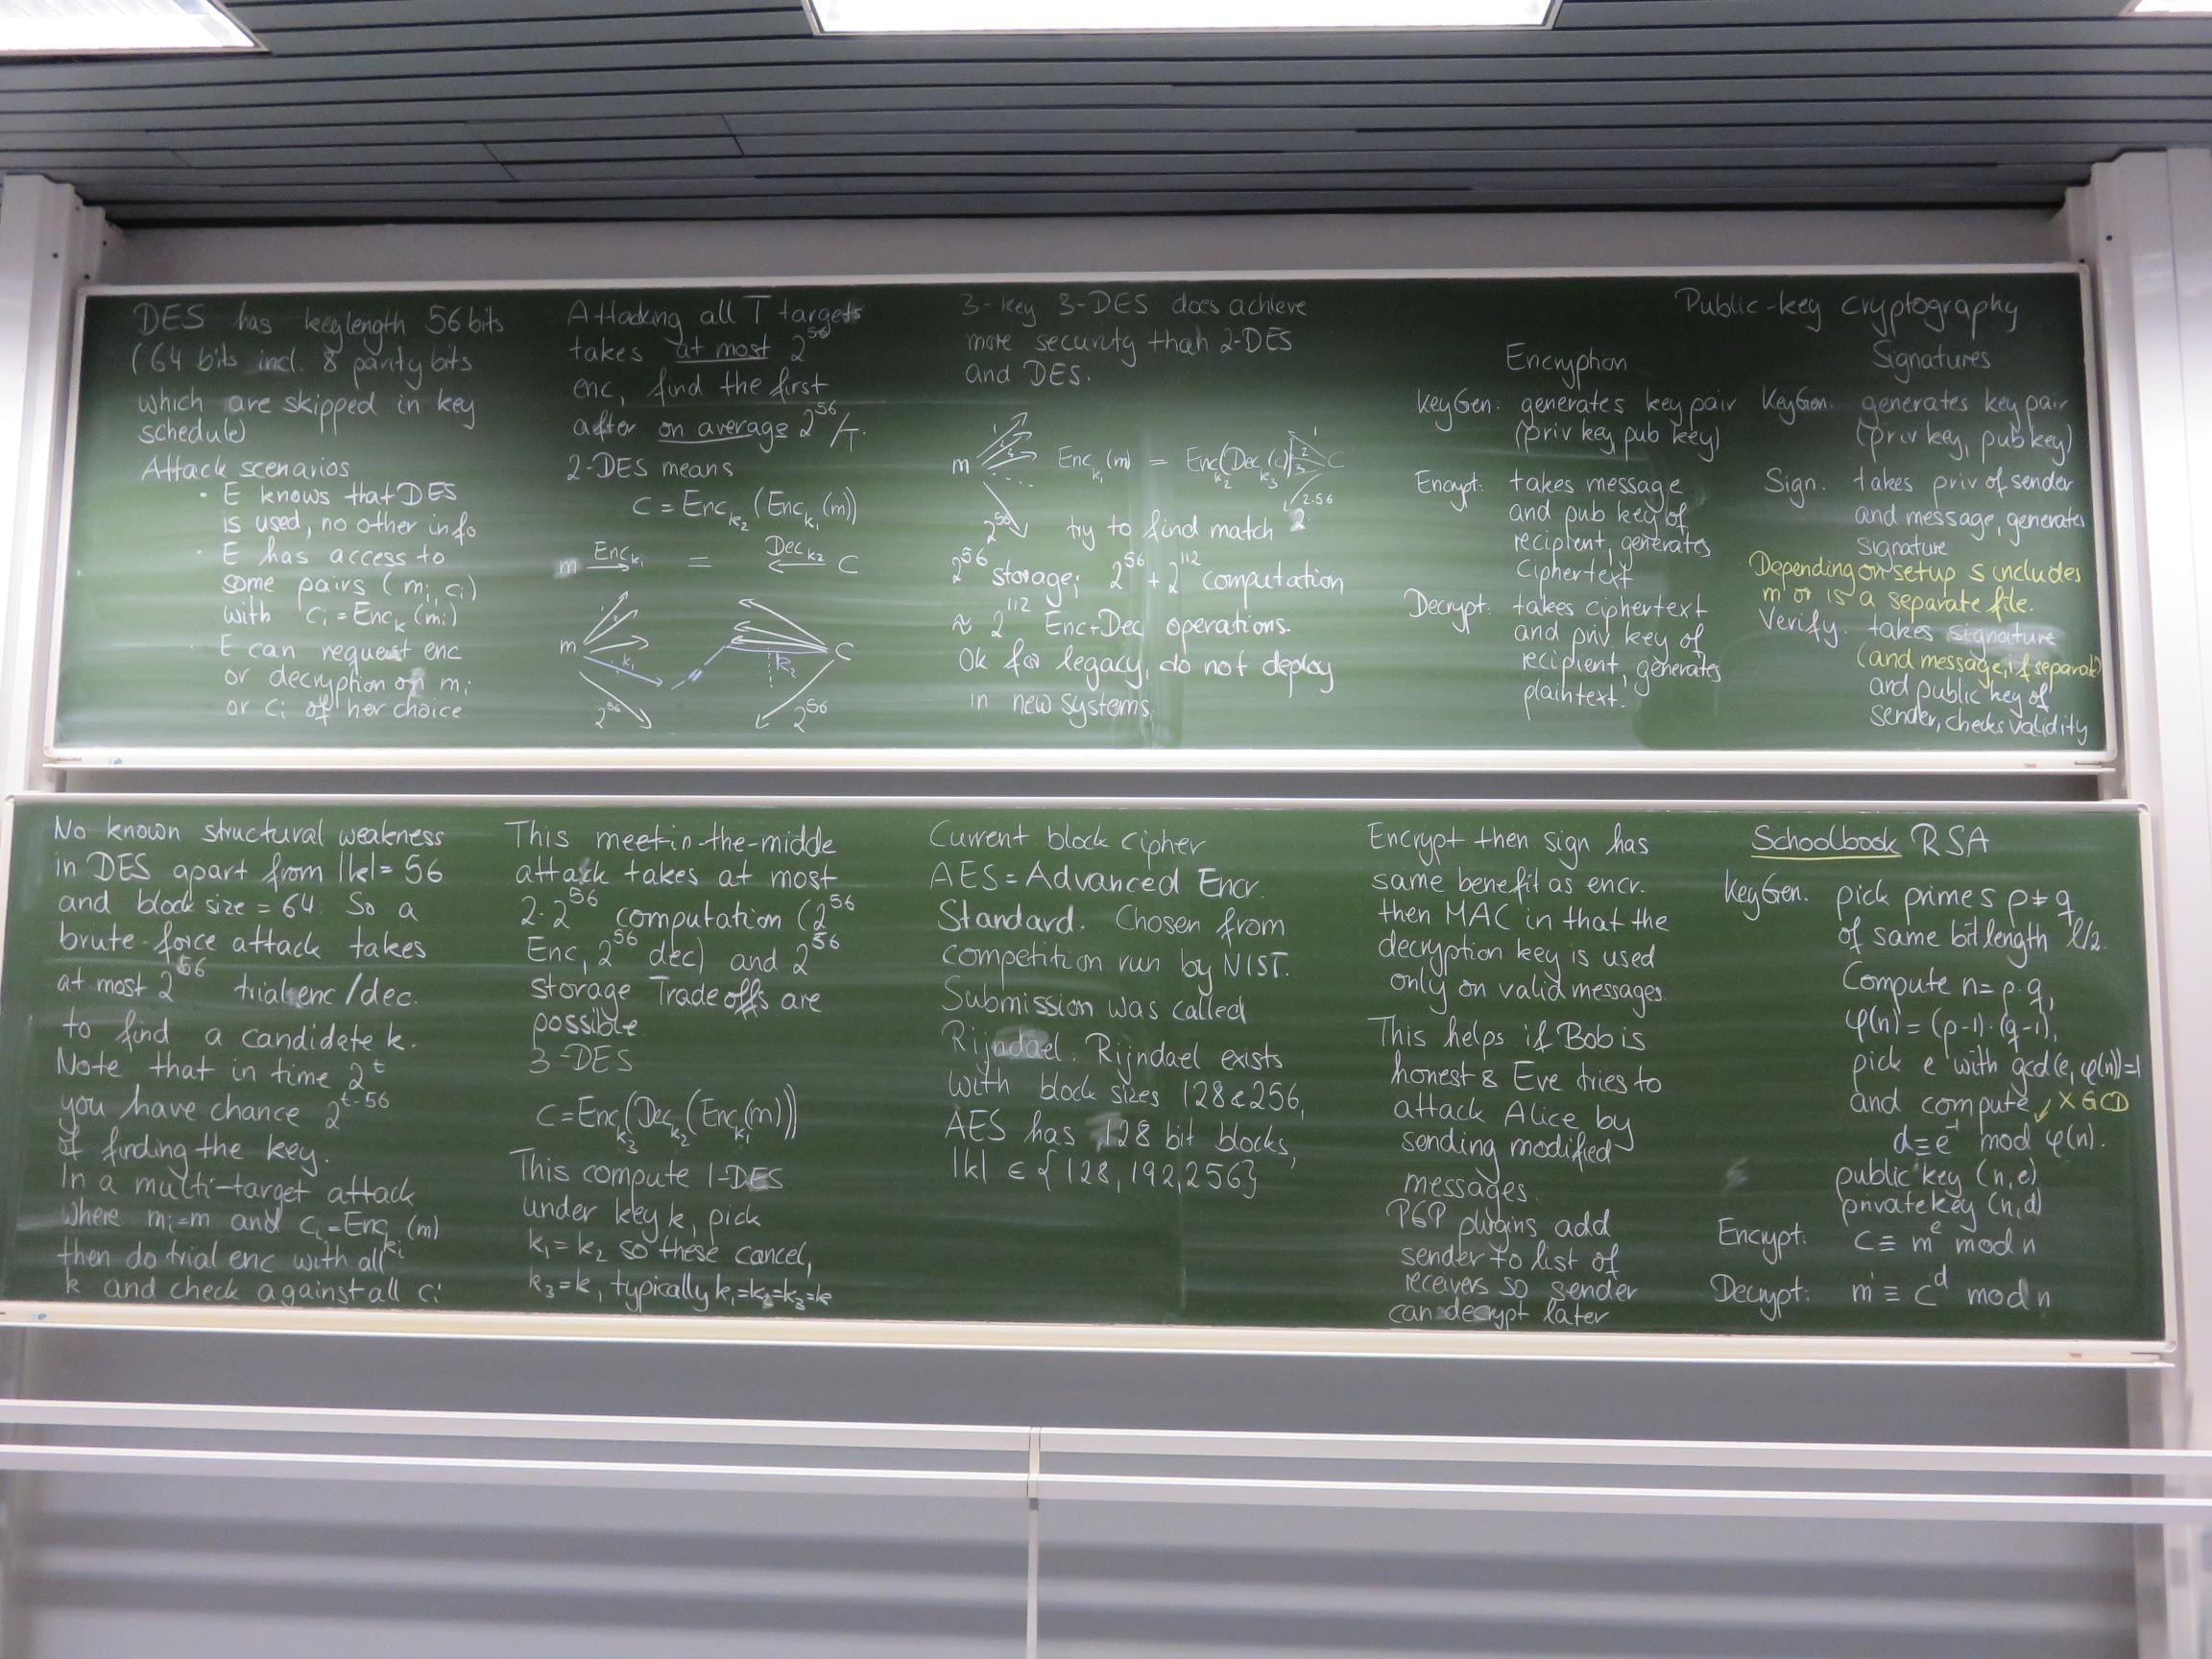 DES has keylength 56 bits
(64 bits incl. 8 parity bits
which are skipped in key
schedule)
Attack scenarios
· E knows that DES
is used, no other info
· E has access to
some pairs (mi, ci)
with ci = Enck (mi)
· E can request enc
or decryption of mi
or ci of her choice
Attacking all T targets
takes at most 2^56
enc, find the first
after on average 2^56/T.
2-DES means
C = Enck2 (Enck1 (m))
m Enck1 = Deck2 C
m k1 k2 C
2^56 2^56
3-key 3-DES does achieve
more security than 2-DES
and DES.
m Enck1(m) = Enck2(Deck3(c)) C
2^56 try to find match 2^2·56
2^56 storage; 2^56 + 2^112 computation
≈ 2^112 Enc+Dec operations.
Ok for legacy, do not deploy
in new systems.
Public-key cryptography
Encryption
KeyGen: generates key pair
(priv key, pub key)
Encrypt: takes message
and pub key of
recipient, generates
ciphertext
Decrypt: takes ciphertext
and priv key of
recipient, generates
plaintext.
Signatures
KeyGen: generates key pair
(priv key, pub key)
Sign: takes priv of sender
and message, generates
signature
Depending on setup s includes
m or is a separate file.
Verify: takes signature
(and message, if separate)
and public key of
sender, checks validity
No known structural weakness
in DES apart from |k|= 56
and block size = 64. So a
brute-force attack takes
at most 2^56 trial enc/dec.
to find a candidate k.
Note that in time 2^t
you have chance 2^t-56
of finding the key.
In a multi-target attack
where mi=m and ci=Encki (m)
then do trial enc with all
k and check against all ci
This meet-in-the-midde
attack takes at most
2·2^56 computation (2^56
Enc, 2^56 dec) and 2^56
storage. Trade offs are
possible.
3-DES
C=Enck3(Deck2(Enck1(m)))
This compute 1-DES
under key k, pick
k1 = k2 so these cancel,
k3=k, typically k1=k2=k3=k
Current block cipher
AES = Advanced Encr.
Standard. Chosen from
competition run by NIST.
Submission was called
Rijndael. Rijndael exists
with block sizes 128 & 256,
AES has 128 bit blocks,
|k| ∈ {128, 192, 256}
Encrypt then sign has
same benefit as encr.
then MAC in that the
decryption key is used
only on valid messages.
This helps if Bob is
honest & Eve tries to
attack Alice by
sending modified
messages.
PGP plugins add
sender to list of
receivers so sender
can decrypt later
Schoolbook RSA
KeyGen: pick primes p≠q
of same bitlength l/2.
Compute n= p·q,
φ(n) = (p-1)·(q-1),
pick e with gcd(e, φ(n))=1
and compute ↙ XGCD
d≡e^-1 mod φ(n).
public key (n,e)
private key (n,d)
Encrypt: c ≡ m^e mod n
Decrypt: m' ≡ c^d mod n